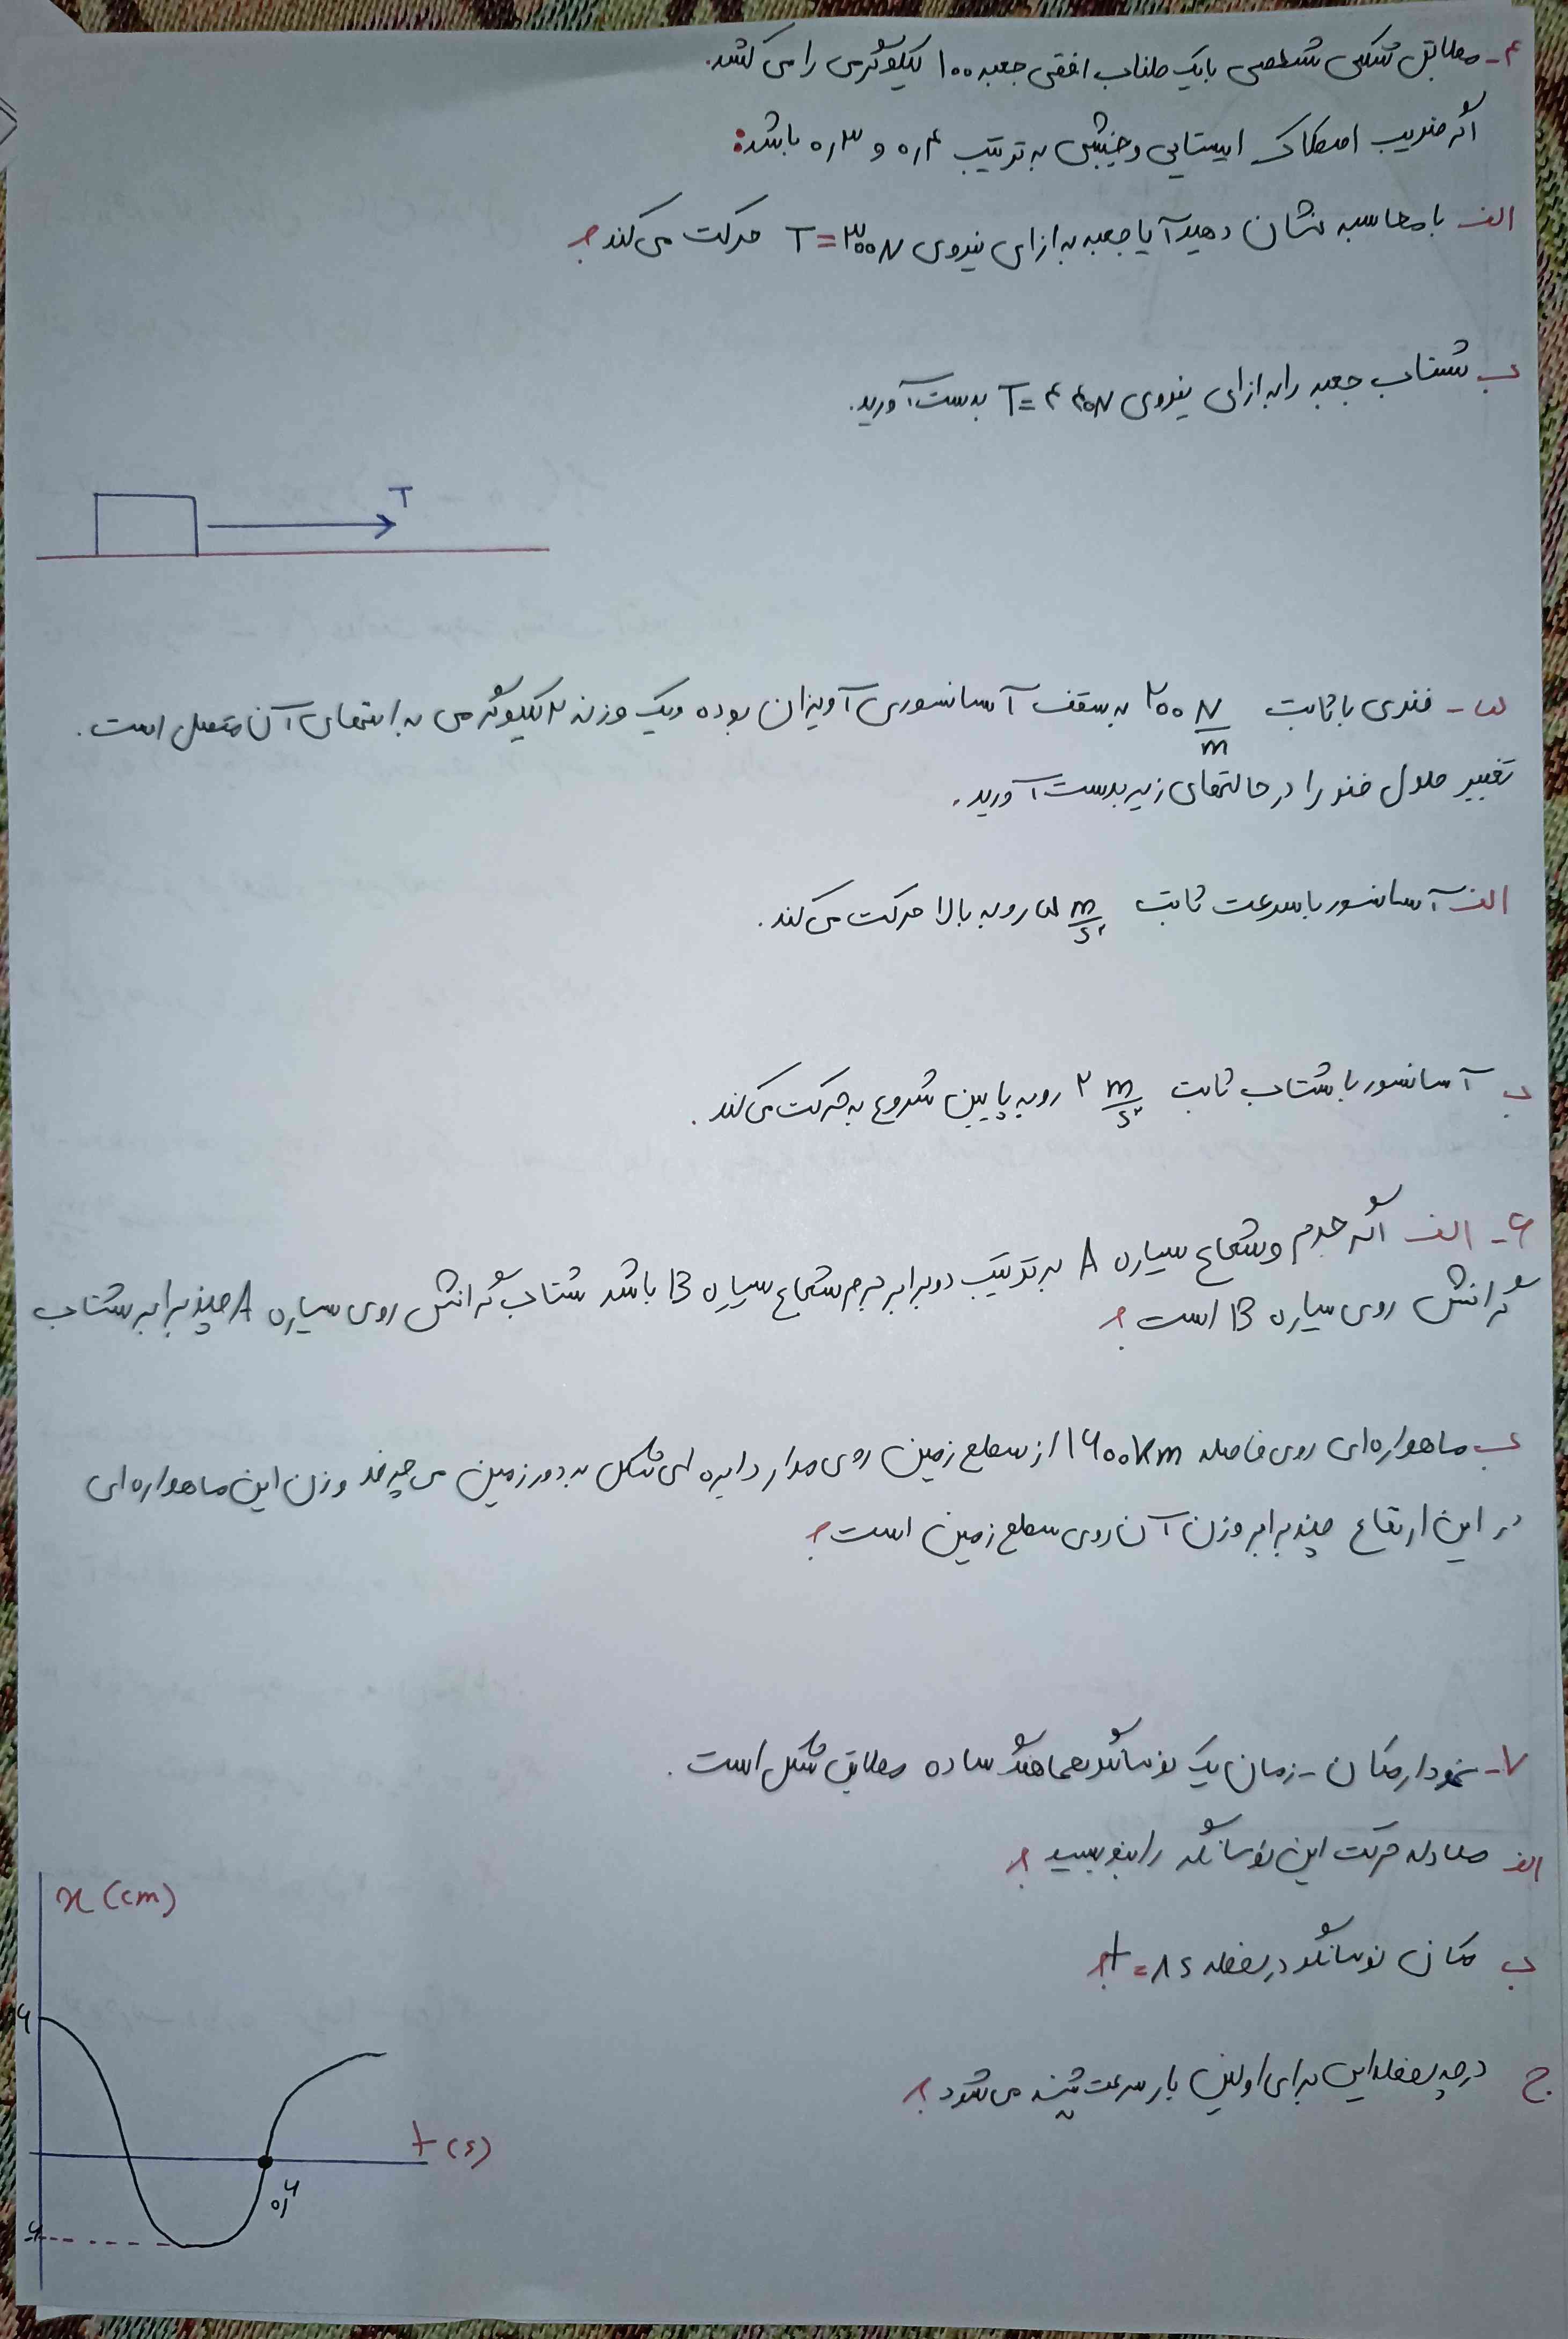 ۴- مطابق شکل شخصی با یک طناب افقی جعبه ۱۰۰ کیلوگرمی را می کشد.
اگر ضریب اصطکاک ایستایی و جنبشی به ترتیب ۰٫۴ و ۰٫۳ باشد:
الف با محاسبه نشان دهید آیا جعبه به ازای نیروی T=۳۰۰N حرکت می کند؟
ب شتاب جعبه را به ازای نیروی T=۴۴۰N بدست آورید.
T
۵- فنری با ثابت ۲۰۰ N/m به سقف آسانسوری آویزان بوده و یک وزنه ۲ کیلوگرمی به انتهای آن متصل است.
تغییر طول فنر را در حالتهای زیر بدست آورید.
الف آسانسور با سرعت ثابت ۵ m/s² رو به بالا حرکت می کند.
ب آسانسور با شتاب ثابت ۲ m/s² رو به پایین شروع به حرکت می کند.
۶- الف اگر جرم و شعاع سیاره A به ترتیب دو برابر جرم شعاع سیاره B باشد شتاب گرانش روی سیاره A چند برابر شتاب
گرانش روی سیاره B است؟
ب ماهواره ای روی فاصله ۱۶۰۰km از سطح زمین روی مدار دایره ای شکل به دور زمین می چرخد وزن این ماهواره ای
در این ارتفاع چند برابر وزن آن روی سطح زمین است؟
۷- نمودار مکان - زمان یک نوسانگر هماهنگ ساده مطابق شکل است.
الف معادله حرکت این نوسانگر را بنویسید؟
ب مکان نوسانگر در لحظه t=۸s؟
ج در چه لحظه ایی برای اولین بار سرعت بیشینه می شود؟
x (cm)
۶
t (s)
۰٫۶
-۶